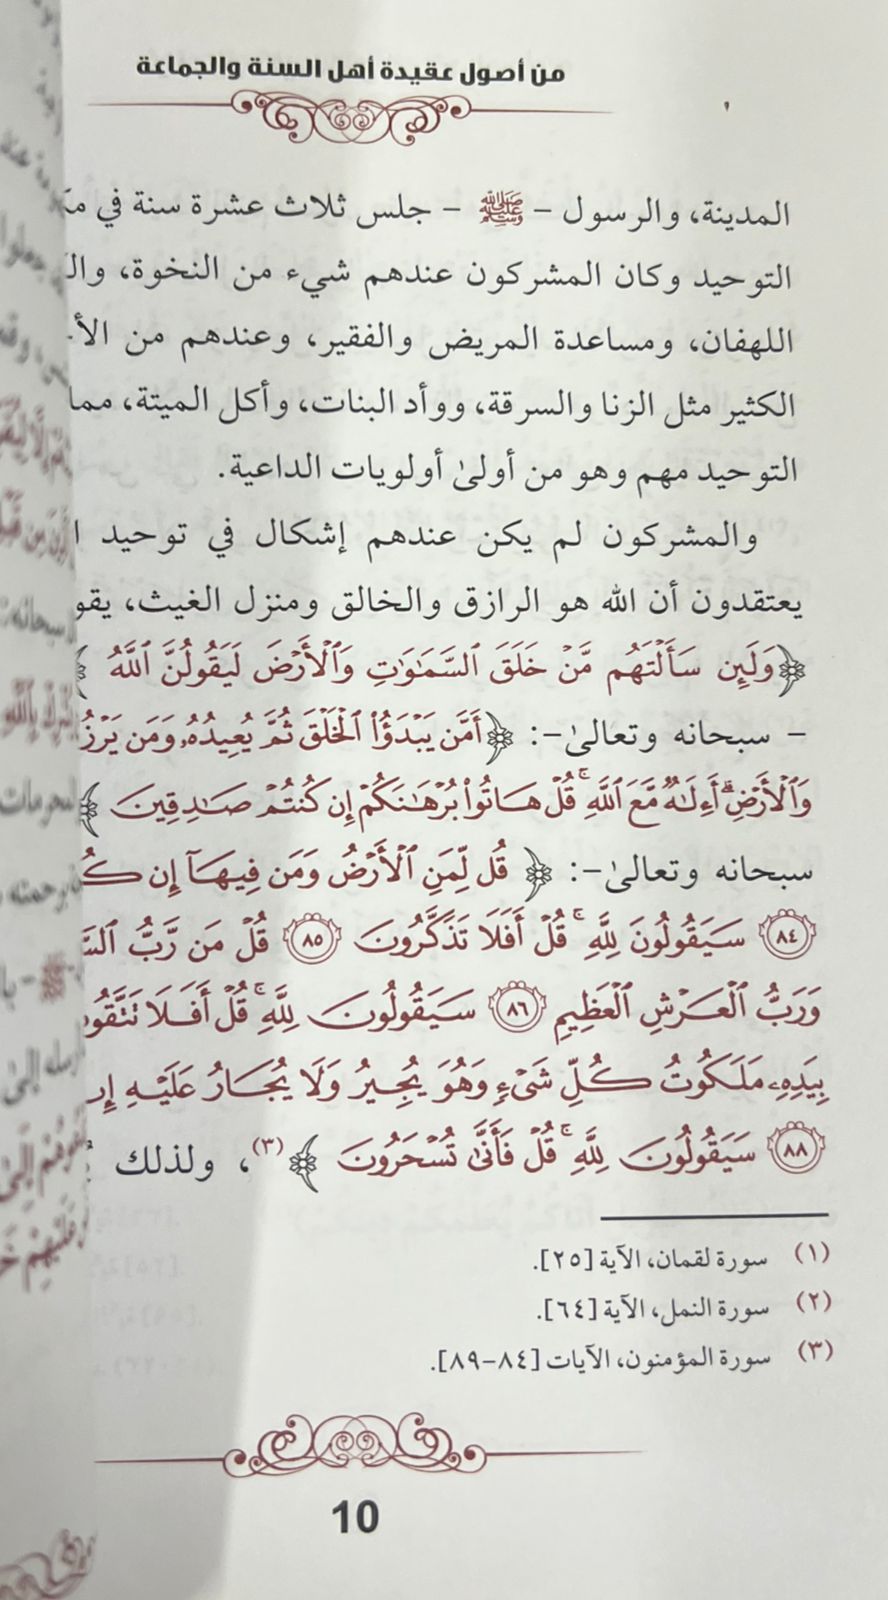 من أصول عقيدة أهل السنة والجماعة
المدينة، والرسول - ﷺ - جلس ثلاث عشرة سنة في
التوحيد وكان المشركون عندهم شيء من النخوة،
اللهفان، ومساعدة المريض والفقير، وعندهم من
الكثير مثل الزنا والسرقة، ووأد البنات، وأكل الميتة، مما
التوحيد مهم وهو من أولىٰ أولويات الداعية.
والمشركون لم يكن عندهم إشكال في توحيد
يعتقدون أن الله هو الرازق والخالق ومنزل الغيث،
﴿وَلَئِن سَأَلْتَهُم مَّنْ خَلَقَ السَّمَٰوَٰتِ وَالْأَرْضَ لَيَقُولُنَّ اللَّهُ﴾
- سبحانه وتعالىٰ-: ﴿أَمَّن يَبْدَؤُا۟ الْخَلْقَ ثُمَّ يُعِيدُهُۥ وَمَن
وَالْأَرْضِ ۗ أَءِلَٰهٌ مَّعَ اللَّهِ ۚ قُلْ هَاتُوا۟ بُرْهَٰنَكُمْ إِن كُنتُمْ صَٰدِقِينَ﴾
سبحانه وتعالىٰ-: ﴿قُل لِّمَنِ الْأَرْضُ وَمَن فِيهَآ إِن
٨٤ سَيَقُولُونَ لِلَّهِ ۚ قُلْ أَفَلَا تَذَكَّرُونَ ٨٥ قُلْ مَن رَّبُّ
وَرَبُّ الْعَرْشِ الْعَظِيمِ ٨٦ سَيَقُولُونَ لِلَّهِ ۚ قُلْ أَفَلَا
بِيَدِهِۦ مَلَكُوتُ كُلِّ شَيْءٍ وَهُوَ يُجِيرُ وَلَا يُجَارُ عَلَيْهِ
٨٨ سَيَقُولُونَ لِلَّهِ ۚ قُلْ فَأَنَّىٰ تُسْحَرُونَ﴾(٣)، ولذلك
(١) سورة لقمان، الآية [٢٥].
(٢) سورة النمل، الآية [٦٤].
(٣) سورة المؤمنون، الآيات [٨٤-٨٩].
10